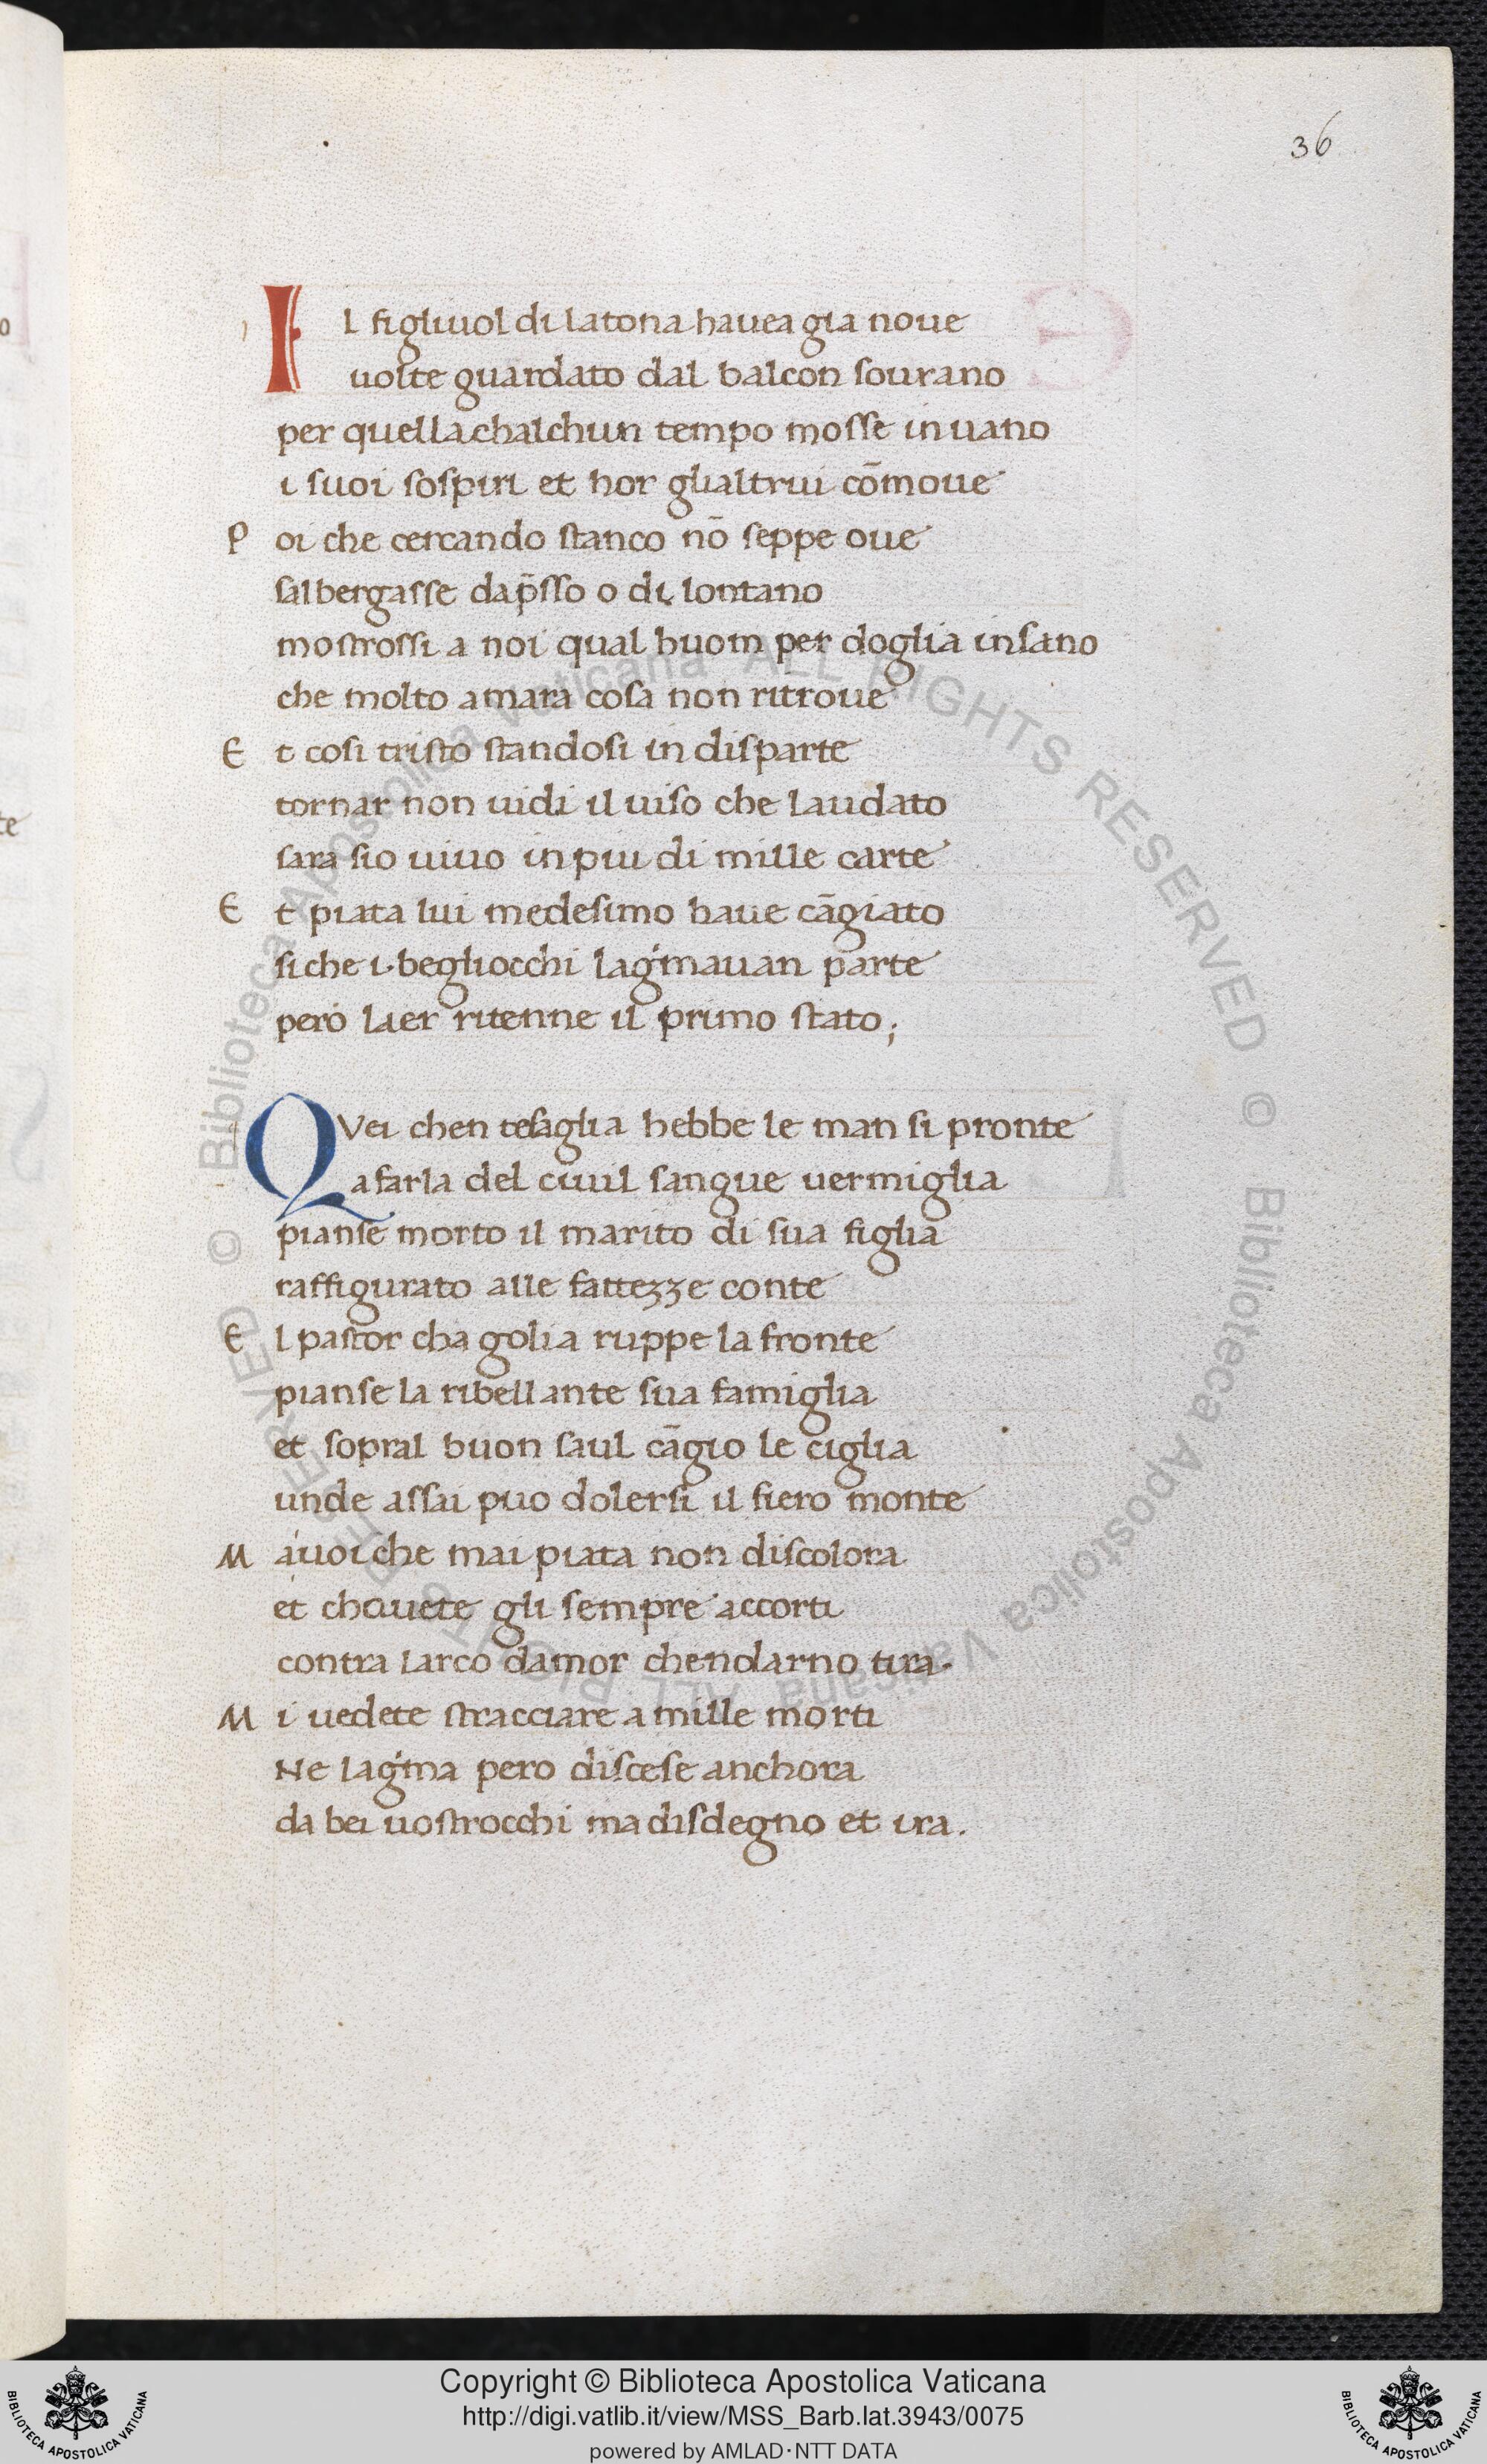 36
IL figliuol di latona hauea gia noue
uolte guardato dal balcon sourano
per quella chalchun tempo mosse in uano
i suoi sospiri et hor glialtrui cōmoue
P oi che cercando stanco nō seppe oue
salbergasse dap̄sso o di lontano
mostrossi a noi qual huom per doglia insano
che molto amara cosa non ritroue
E t cosi tristo standosi in disparte
tornar non uidi il uiso che laudato
sara sio uiuo in piu di mille carte
E t piata lui medesimo haue cāgiato
si che i begliocchi lagr̄mauan parte
però laer ritenne il primo stato;
QVei chen tesaglia hebbe le man si pronte
a farla del ciuil sangue uermiglia
pianse morto il marito di sua figlia
raffigurato alle fattezze conte
E l pastor cha golia ruppe la fronte
pianse la ribellante sua famiglia
et sopral buon saul cāgio le ciglia
unde assai puo dolersi il fiero monte
M a uoi che mai piata non discolora
et chauete gli sempre accorti
contra larco damor chendarno tira.
M i uedete stracciare a mille morti
Ne lagr̄ma pero discese anchora
da bei uostrocchi ma disdegno et ira.
© Biblioteca Apostolica Vaticana ALL RIGHTS RESERVED © Biblioteca Apostolica Vaticana ALL RIGHTS RESERVED
Copyright © Biblioteca Apostolica Vaticana
http://digi.vatlib.it/view/MSS_Barb.lat.3943/0075
powered by AMLAD·NTT DATA
BIBLIOTECA APOSTOLICA VATICANA
BIBLIOTECA APOSTOLICA VATICANA